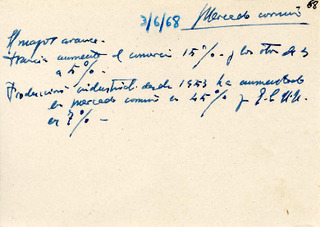 68
3/6/68 Mercado común
El mayor avance.
Francia aumentó el comercio 15% y los otros de 3
a 5% -
Producción industrial desde 1953 ha aumentado
en mercado común en 45% y E.E.U.U.
en 7% -